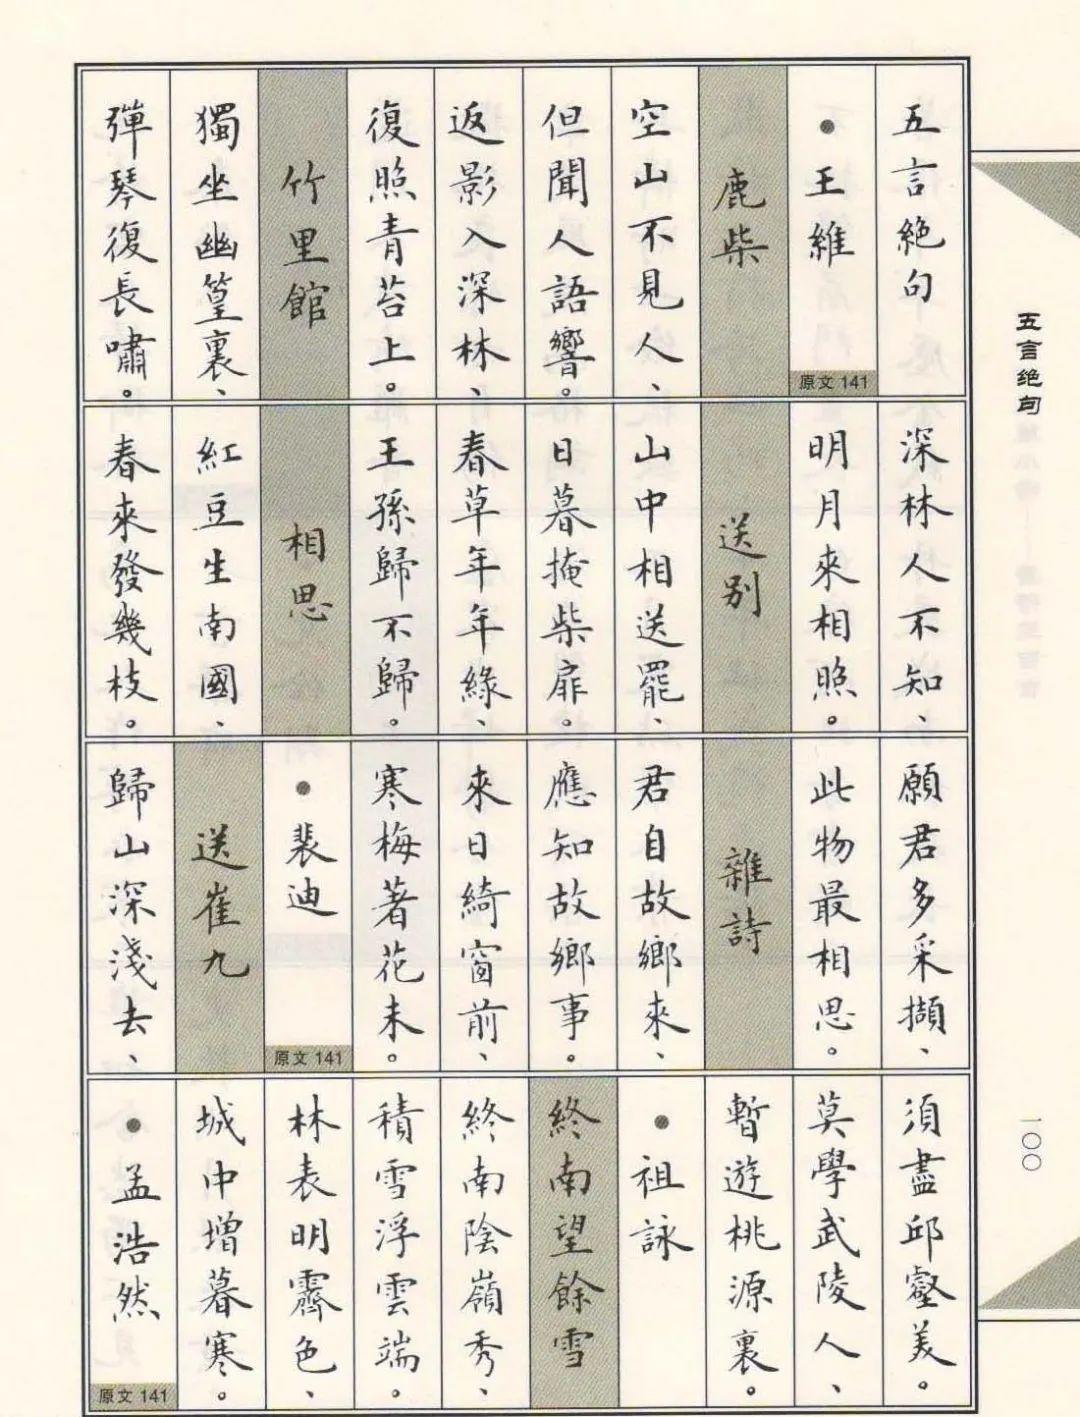 五言絕句
•王維
原文141
鹿柴
空山不見人、
但聞人語響。
返影入深林、
復照青苔上。
竹里館
獨坐幽篁裏、
彈琴復長嘯。
深林人不知、
明月來相照。
送别
山中相送罷、
日暮掩柴扉。
春草年年緑、
王孫歸不歸。
相思
紅豆生南國、
春來發幾枝。
願君多采擷、
此物最相思。
雜詩
君自故鄉來、
應知故鄉事。
來日綺窗前、
寒梅著花未。
•裴迪
原文141
送崔九
歸山深淺去、
須盡邱壑美。
莫學武陵人、
暫遊桃源裏。
•祖詠
終南望餘雪
終南陰嶺秀、
積雪浮雲端。
林表明霽色、
城中增暮寒。
•孟浩然
原文141
五言绝句
一〇〇